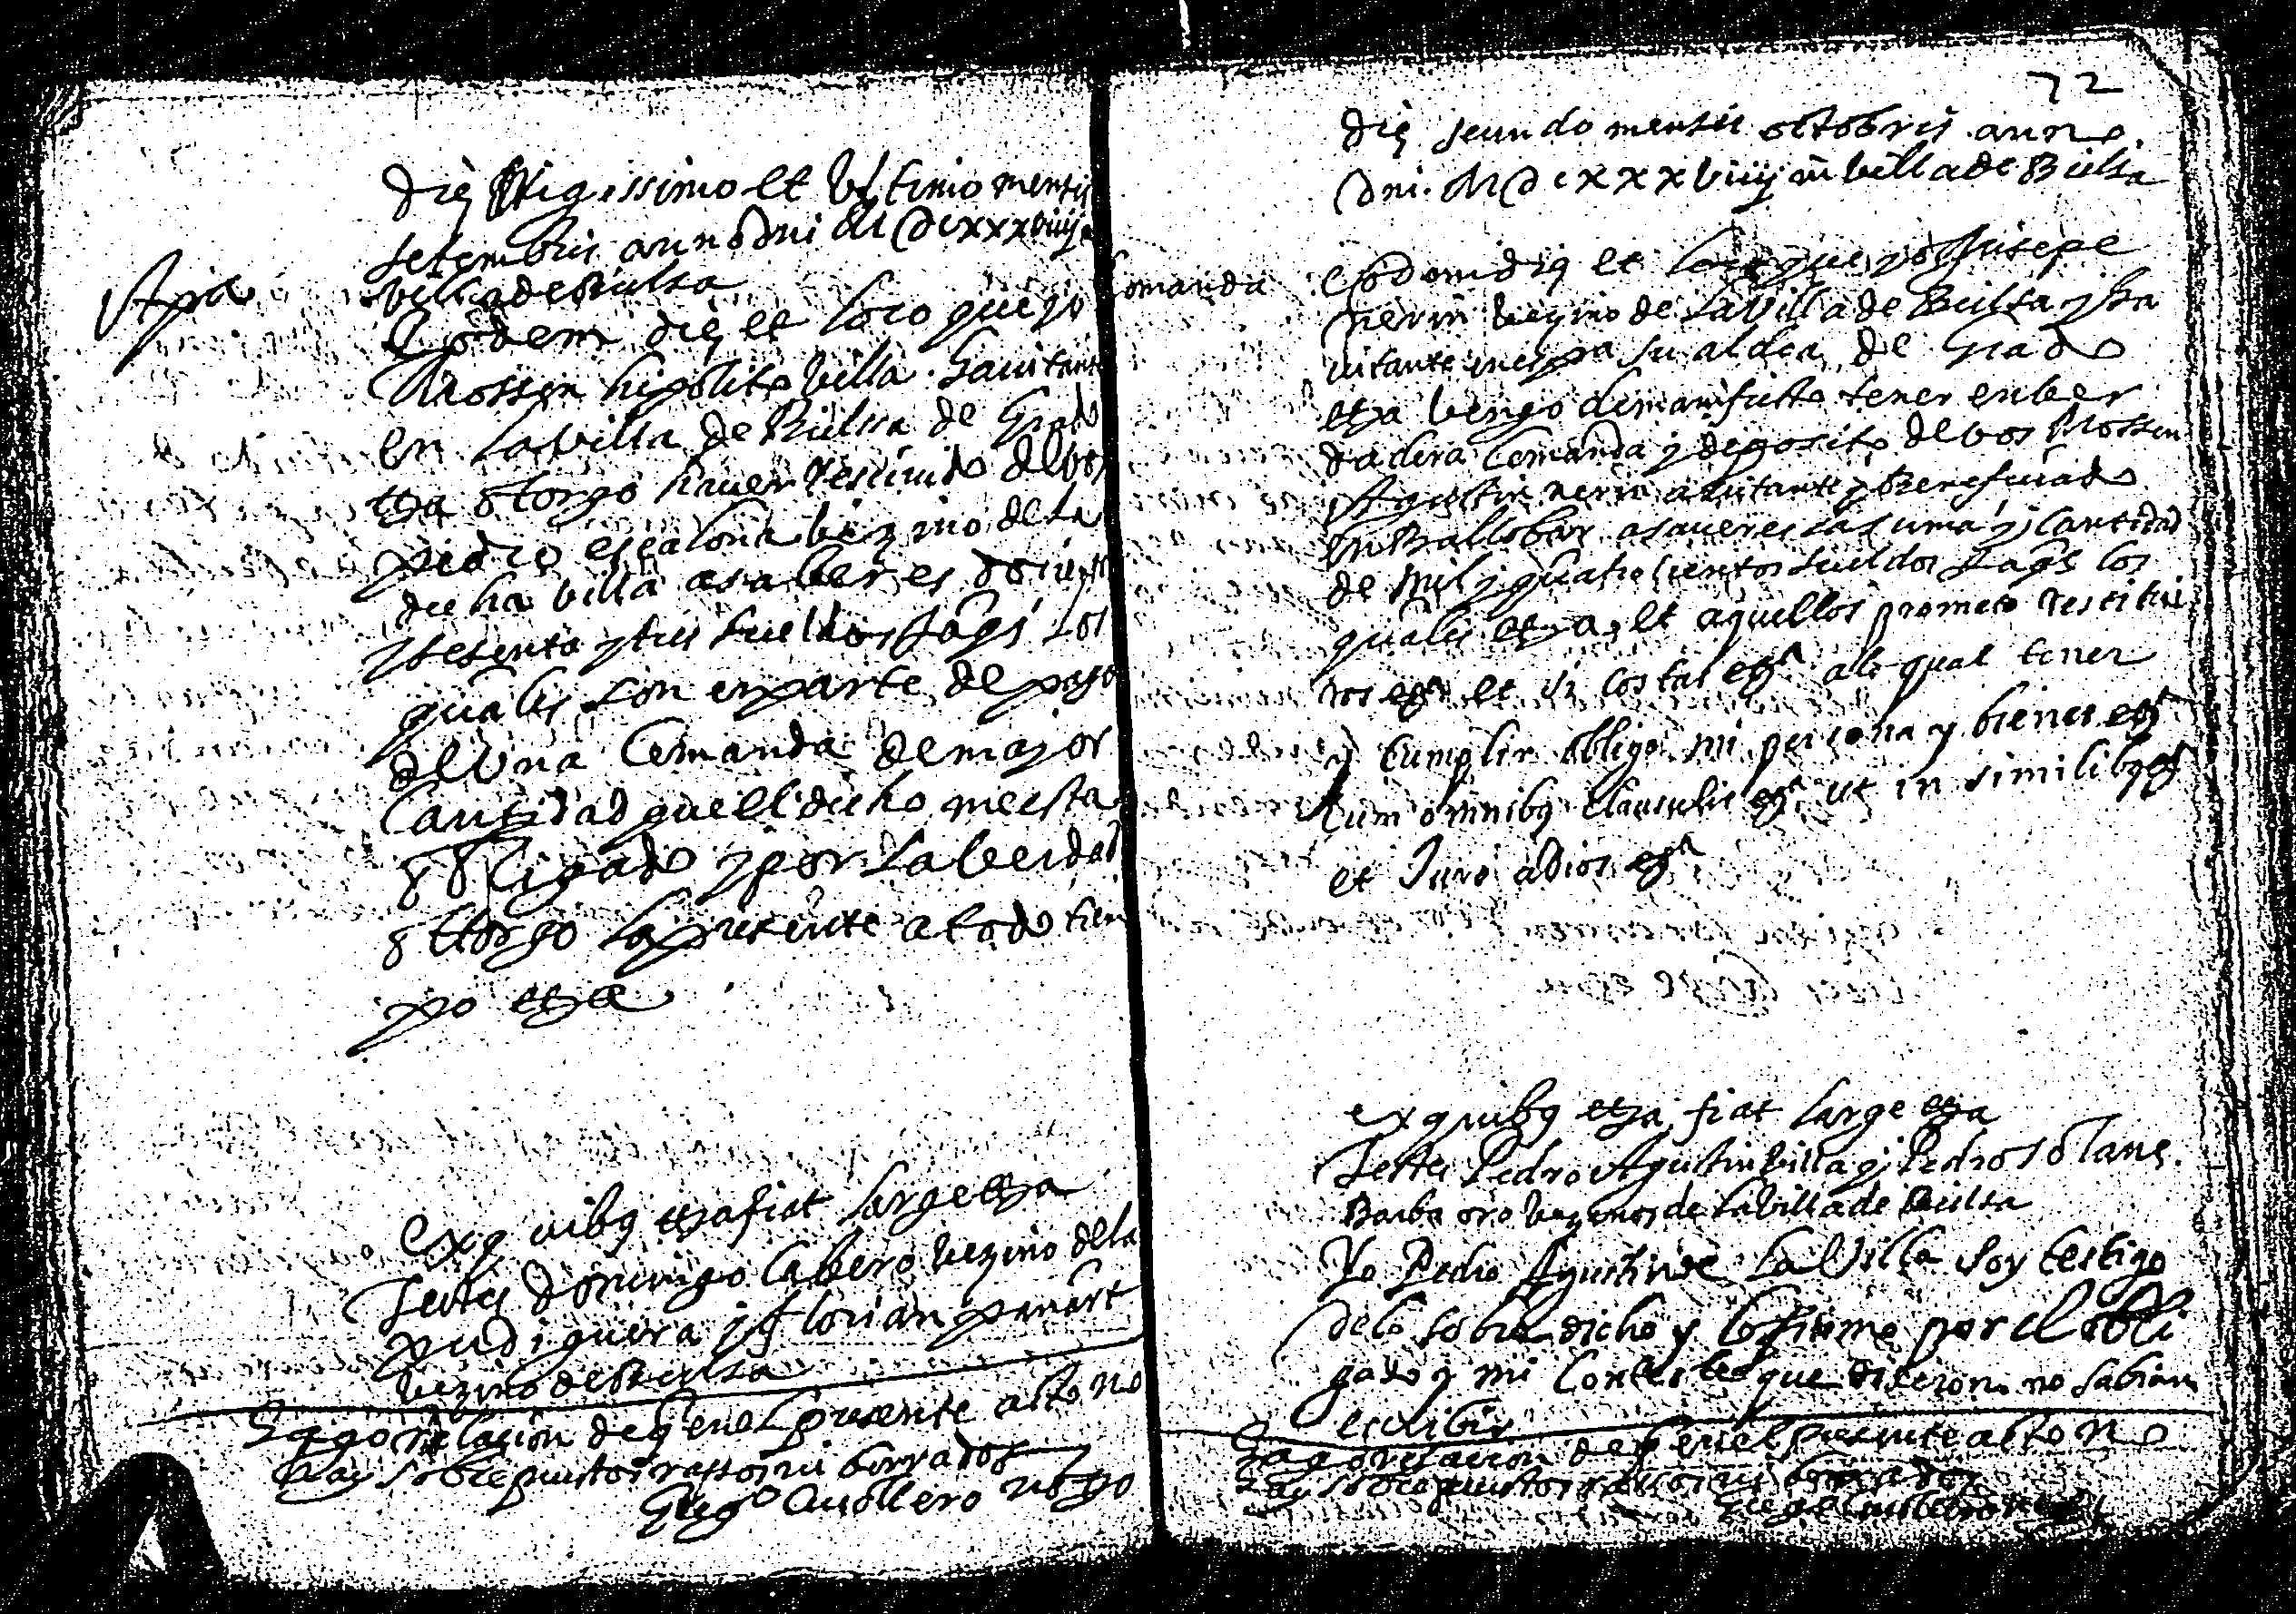 die trigessimo et Ultimo mensis
setembris anno dni M DCxxxviiij
villa de Bielsa
Apoca
Eodem die et loco que yo
Mossen hipolito Villa havitante
en la Villa de Bielsa de Grado
etza otorgo haver rescivido de vos
pedro escalona vezino de la
dicha villa asaber es docientos
y sesenta y seis sueldos Jaqs los
quales son en parte de pago
de Una Comanda de major
Cantidad que el dicho me esta
obligado y por la verdad
ottorgo la presente a todo tiem
po etza
ex quibq etza fiat large etza
Testes domingo Cabero vezino de la
pudiguera y florian panart
vezino de Bielsa
Hago relacion de q en el presente acto no
hay sobrepuestos rassos ni borrados
Gregº Cavallero notº
72
die secundo mensis octobris anno
dni. M DCxxxviiij in villa de Bielsa
Comanda
Eodem die et loco que yo Jusepe
nerin vezino de la Villa de Bielsa y ha
vitante en espa su aldea de Grado
etza vengo de manifiesto tener en ver
dadera Comanda y deposito de vos Mossen
Agustin nerin avitante y Beneficiado
en Ballobar asaver es la suma y Cantidad
de Mil y quatrocientos sueldos Jaqs los
quales etza, et aquellos prometo restituir
vos etza et si costas etza a lo qual tener
y Cumplir obligo mi persona y bienes etza
Cum omnibq Clausulis etza ut in similibq etza
et Juro a Dios etza
ex quibq etza fiat large etza
Testes Pedro Agustin Villa y Pedro solans
Barba oro vezinos de la Villa de Bielsa
Yo Pedro Agustin de La Villa soy testigo
de lo sobre dicho y lo firmo por el obli
gado y mi Conteste que dixeron no sabian
escribir
Hago relacion de q en el presente acto no
hay sobrepuestos rassos ni borrados